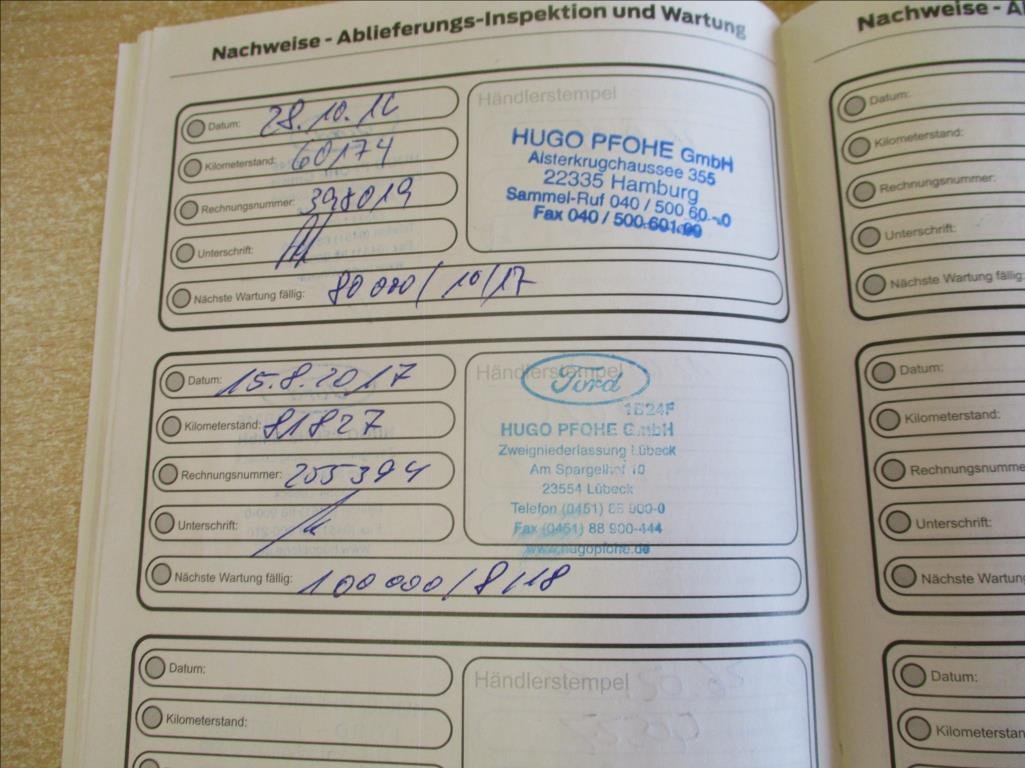 Nachweise - Ablieferungs-Inspektion und Wartung
Datum: 28.10.16
Kilometerstand: 60174
Rechnungsnummer: 398019
Unterschrift:
Nächste Wartung fällig: 80 000 / 10 / 17
Händlerstempel
HUGO PFOHE GmbH
Alsterkrugchaussee 355
22335 Hamburg
Sammel-Ruf 040 / 500 60-0
Fax 040 / 500 601 99
Datum: 15.8.2017
Kilometerstand: 81827
Rechnungsnummer: 255394
Unterschrift:
Nächste Wartung fällig: 100 000 / 8 / 18
Händlerstempel
Ford
1B24F
HUGO PFOHE GmbH
Zweigniederlassung Lübeck
Am Spargelhof 10
23554 Lübeck
Telefon (0451) 88 900-0
Fax (0451) 88 900-444
www.hugopfohe.de
Datum:
Kilometerstand:
Händlerstempel
Nachweise - A
Datum:
Kilometerstand:
Rechnungsnummer:
Unterschrift:
Nächste Wartung fällig:
Datum:
Kilometerstand:
Rechnungsnumme
Unterschrift:
Nächste Wartung
Datum:
Kilometerstand: